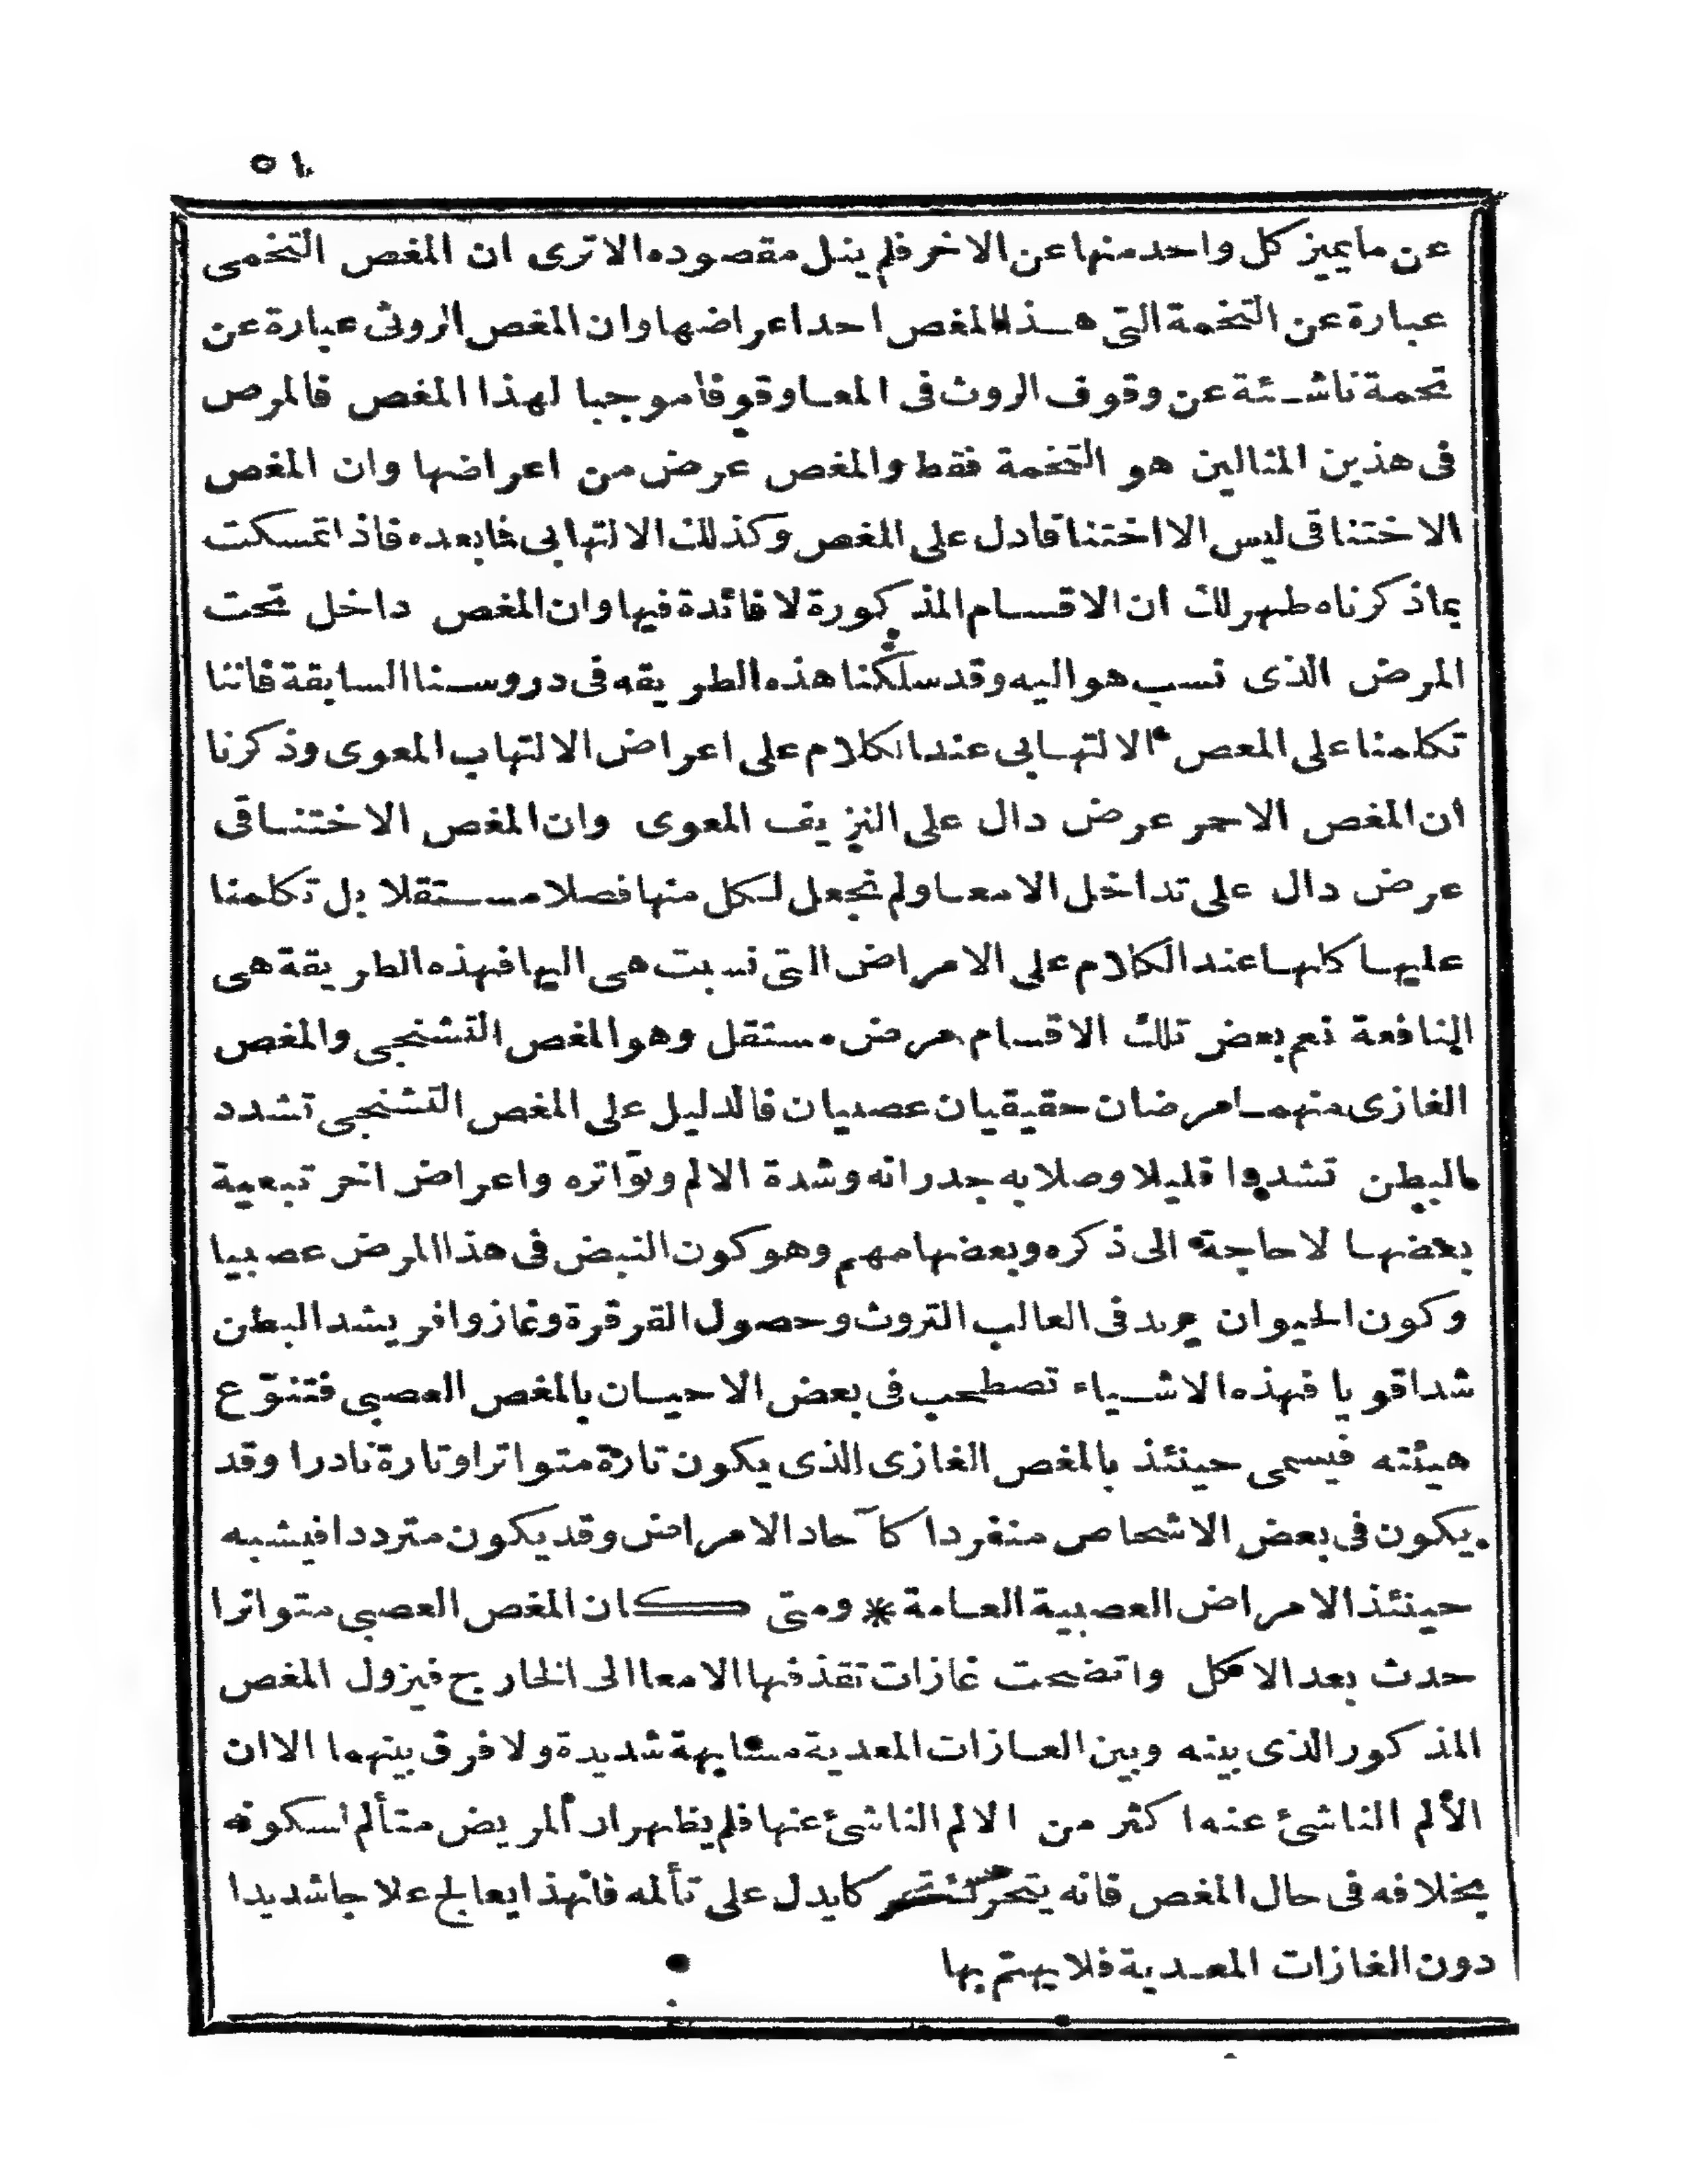 ٥١
عن مايميز كل واحد منها عن الاخر فلم ينل مقصوده الا ترى ان المغص التخمى
عبارة عن التخمة التى هذا المغص احد اعراضها وان المغص الروثى عبارة عن
تخمة ناشئة عن وقوف الروث فى المعا وقوفا موجبا لهذا المغص فالمرض
فى هذين المثالين هو التخمة فقط والمغص عرض من اعراضها وان المغص
الاختناقى ليس الا اختناقا دل على المغص وكذلك الالتهابى فابعده فاذا تمسكت
بماذكرناه ظهر لك ان الاقسام المذكورة لا فائدة فيها وان المغص داخل تحت
المرض الذى نسب هو اليه وقد سلكنا هذه الطريقه فى دروسنا السابقة فاننا
تكلمنا على المغص الالتهابى عند الكلام على اعراض الالتهاب المعوى وذكرنا
ان المغص الاحمر عرض دال على النزيف المعوى وان المغص الاختناقى
عرض دال على تداخل الامعا ولم نجعل لكل منها فصلا مستقلا بل تكلمنا
عليها كلها عند الكلام على الامراض التى نسبت هى اليها فهذه الطريقة هى
النافعة نعم بعض تلك الاقسام مرض مستقل وهو المغص التشنجى والمغص
الغازى منهما مرضان حقيقيان عصبيان فالدليل على المغص التشنجى تشدد
البطن تشددا قليلا وصلابه جدرانه وشدة الالم وتواتره واعراض اخر تبعية
بعضها لا حاجة الى ذكره وبعضها مهم وهو كون النبض فى هذا المرض عصبيا
وكون الحيوان يريد فى الغالب التروث وحصول القرقرة وغاز وافر يشد البطن
شدا قويا فهذه الاشياء تصطحب فى بعض الاحيان بالمغص العصبى فتنوّع
هيئته فيسمى حينئذ بالمغص الغازى الذى يكون تارة متواترا وتارة نادرا وقد
يكون فى بعض الاشخاص منفردا كآحاد الامراض وقد يكون مترددا فيشبه
حينئذ الامراض العصبية العامة * ومتى كان المغص العصبى متواترا
حدث بعد الاكل واتضحت غازات تقذفها الامعا الى الخارج فيزول المغص
المذكور الذى بينه وبين الغازات المعدية مشابهة شديدة ولا فرق بينهما الا ان
الألم الناشئ عنه اكثر من الالم الناشئ عنها فلم يظهر ان المريض متألم لسكوته
بخلافه فى حال المغص فانه يتحرك كايدل على تألمه فلهذا يعالج علاجا شديدا
دون الغازات المعدية فلا يهتم بها